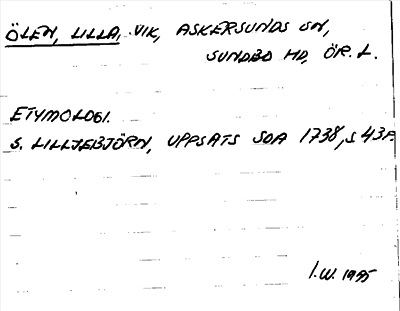 ÖLEN, LILLA, VIK, ASKERSUNDS SN,
SUNDBO HD, ÖR. L.
ETYMOLOGI.
S. LILLJEBJÖRN, UPPSATS SOA 1738, S 43.
I.W. 1995